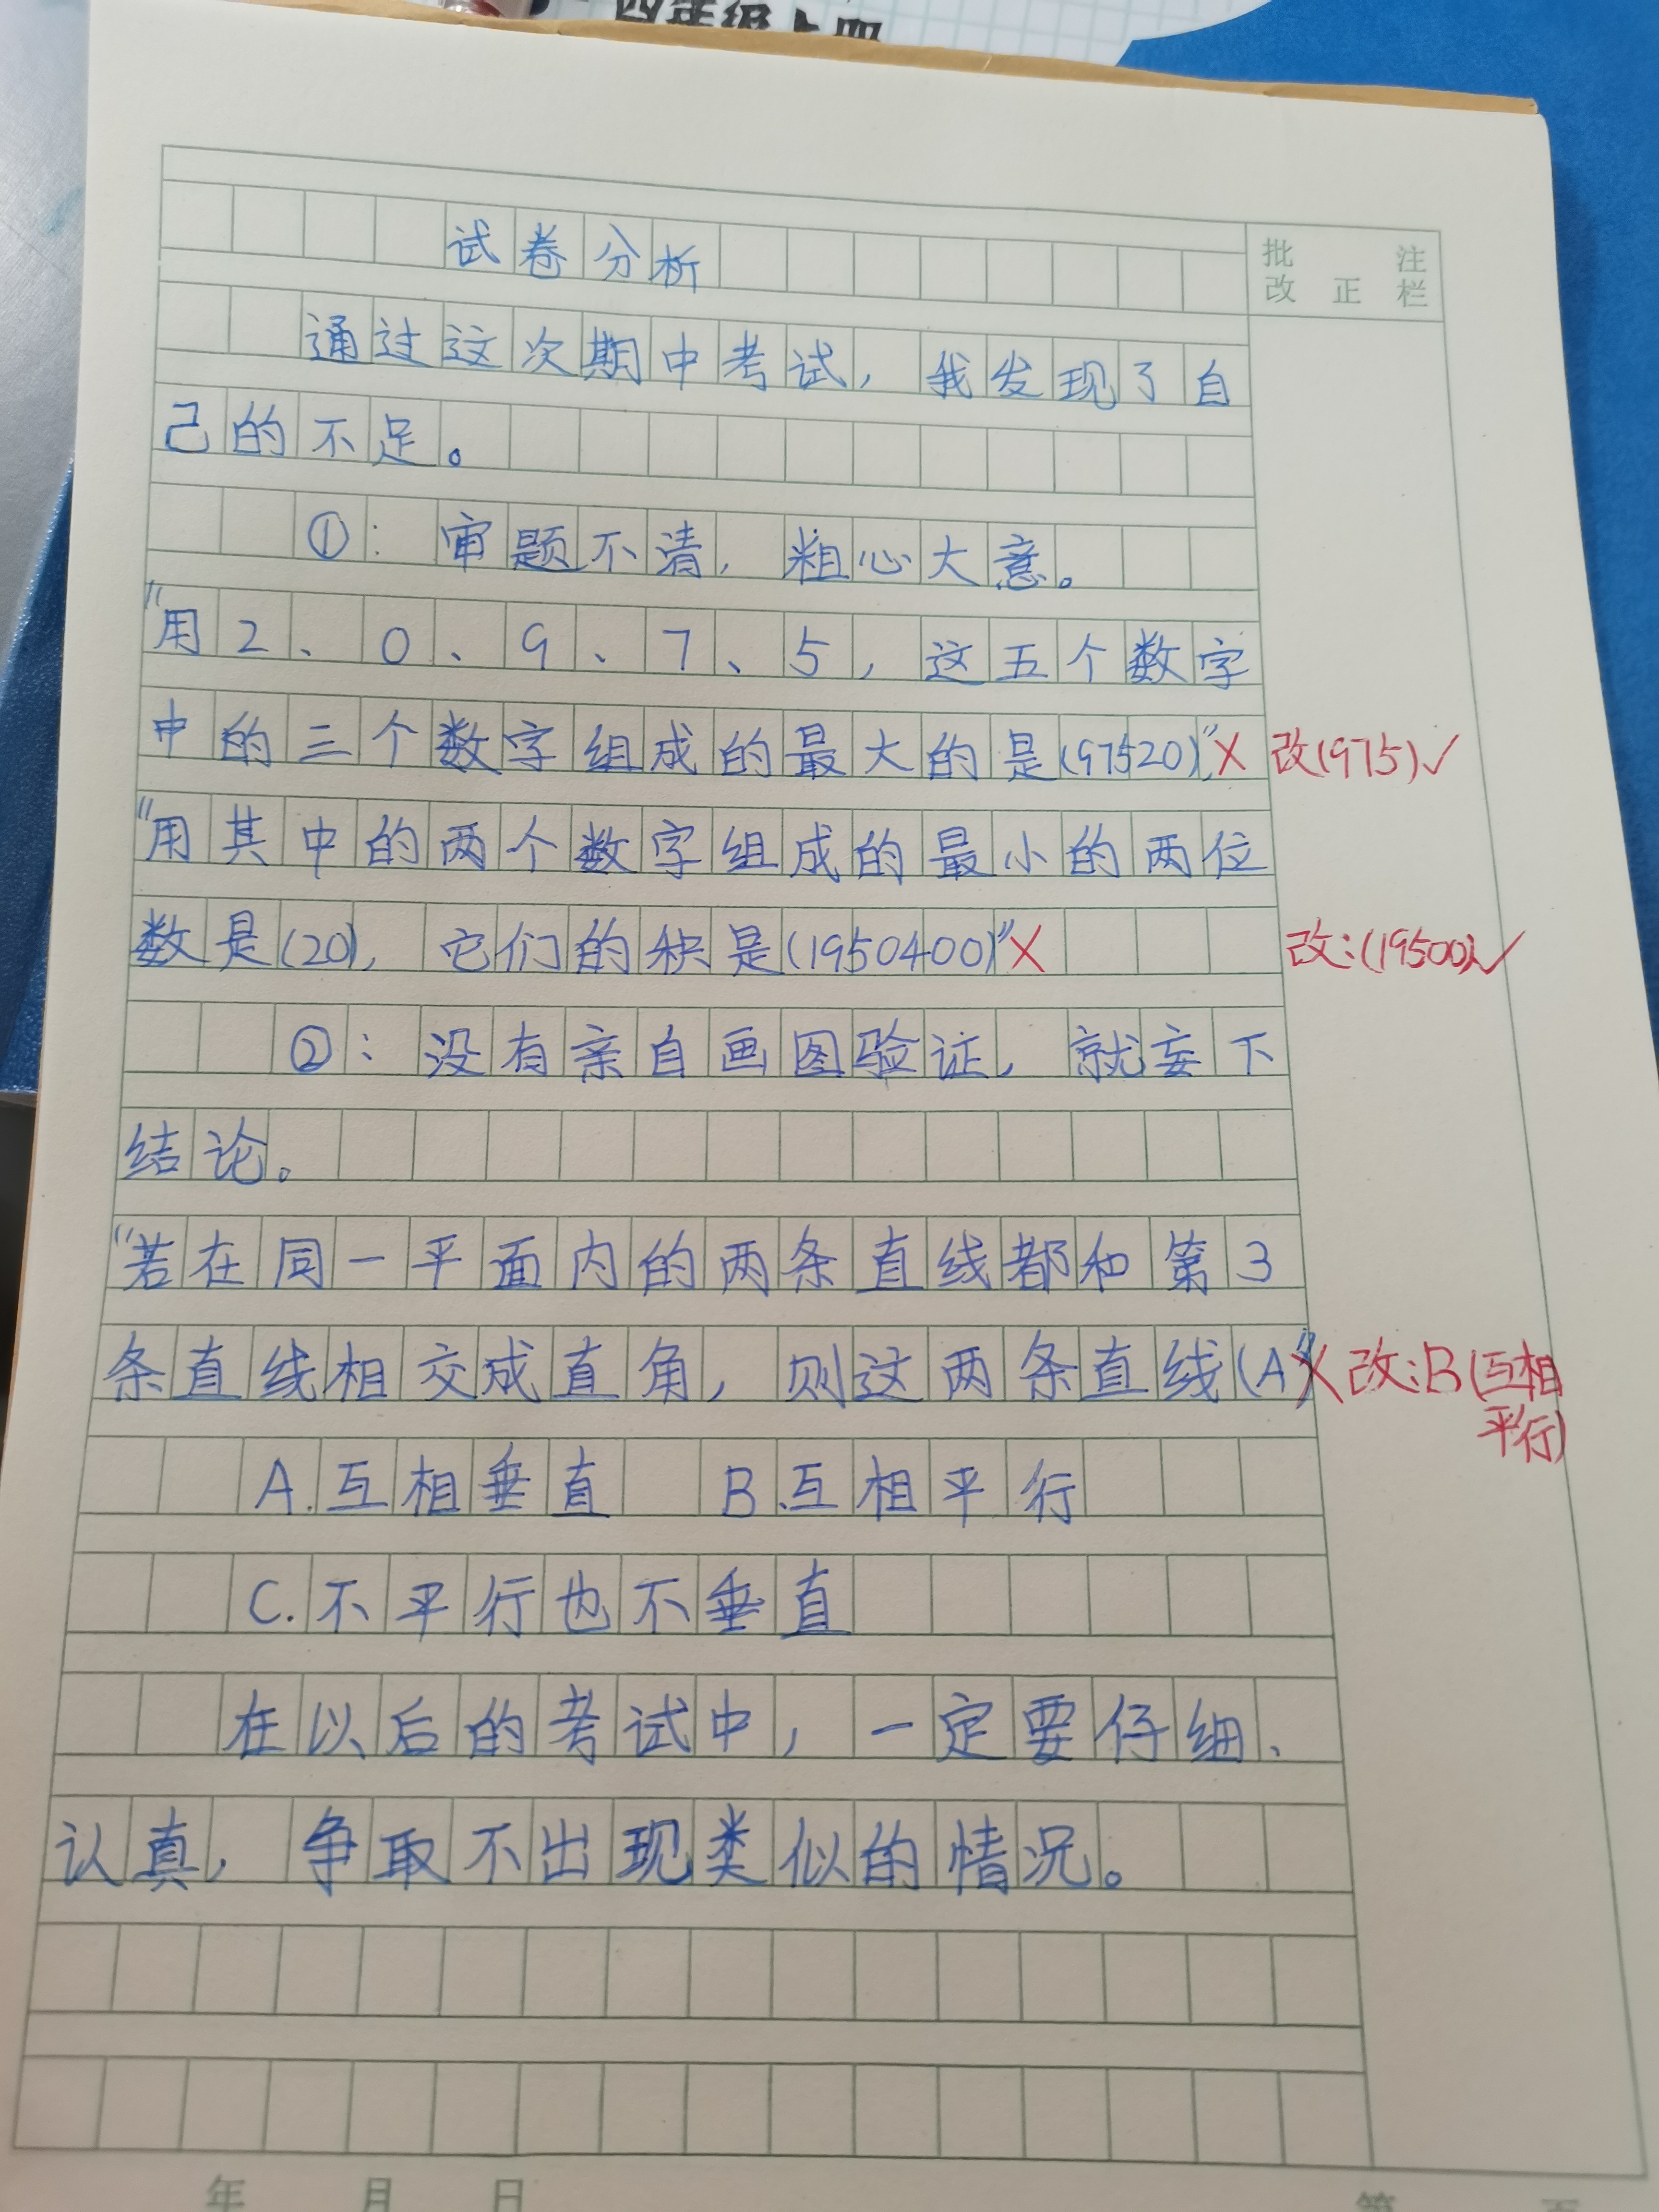 四年级上册
批注
改正栏
试卷分析
通过这次期中考试，我发现了自
己的不足。
①：审题不清，粗心大意。
“用2、0、9、7、5，这五个数字
中的三个数字组成的最大的是(97520)”X 改(975)✓
“用其中的两个数字组成的最小的两位
数是(20)，它们的积是(1950400)”X 改:(19500)✓
②：没有亲自画图验证，就妄下
结论。
“若在同一平面内的两条直线都和第3
条直线相交成直角，则这两条直线(A)”X 改:B(互相
平行)
A.互相垂直 B.互相平行
C.不平行也不垂直
在以后的考试中，一定要仔细、
认真，争取不出现类似的情况。
年 月 日 第 页